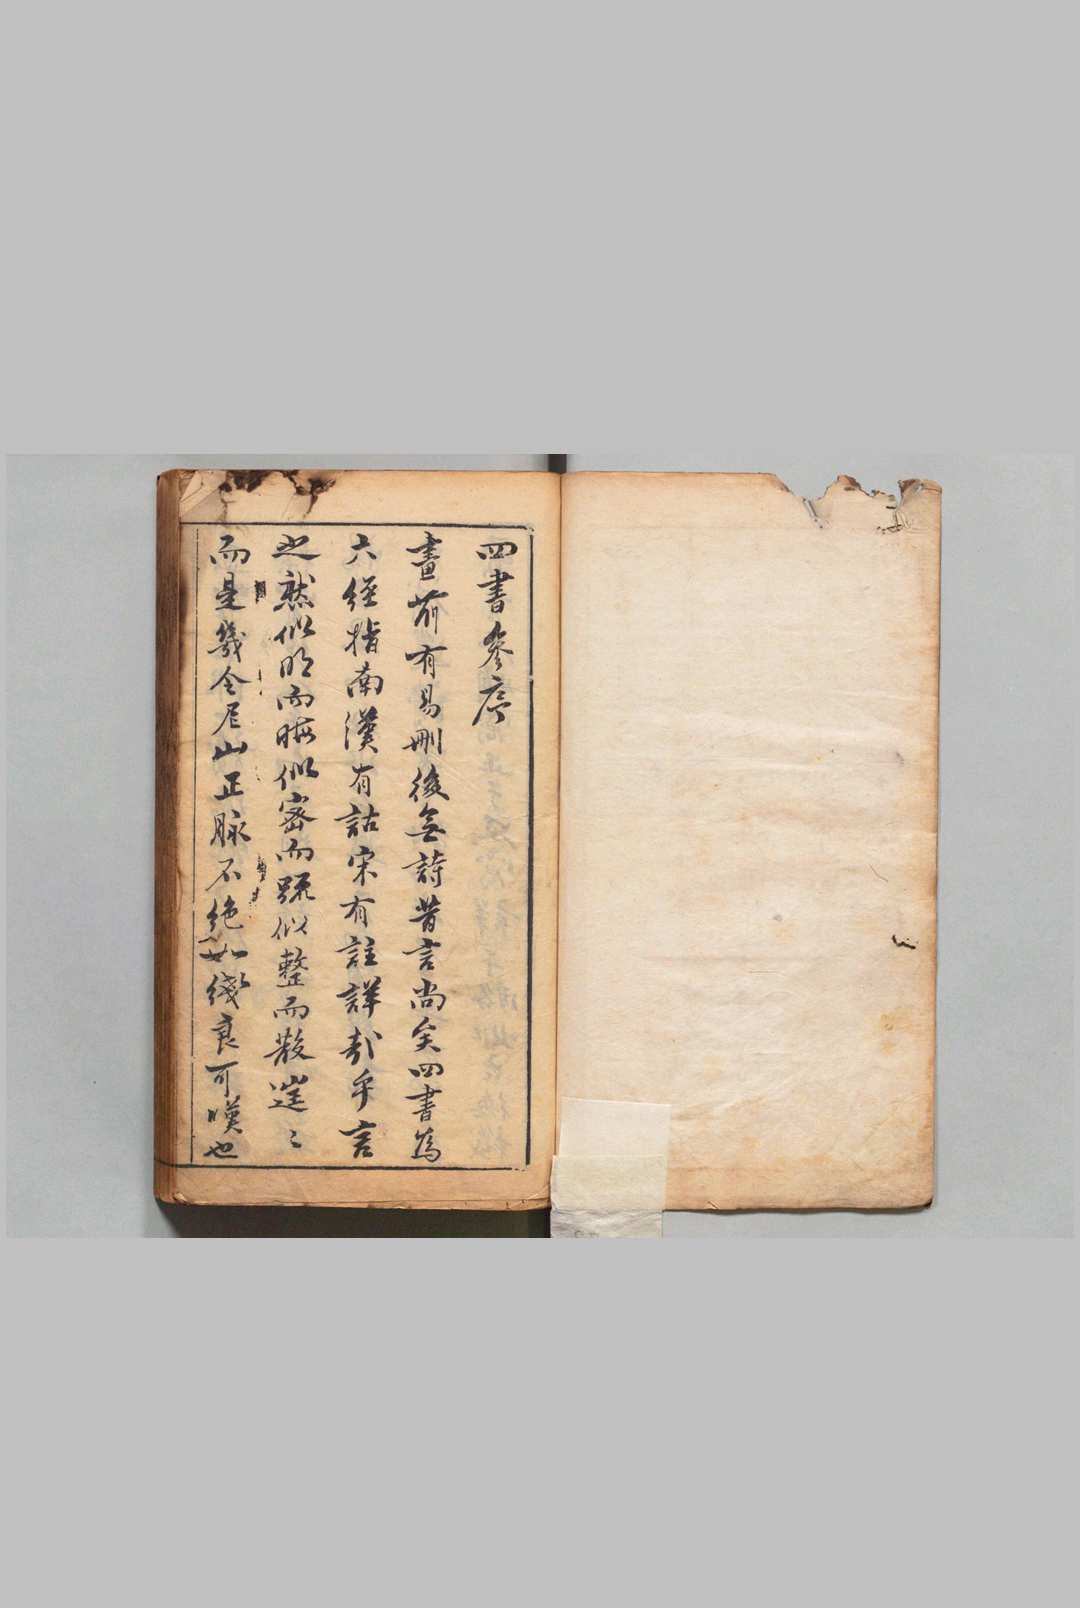 四書參序
畫前有易刪後無詩昔言尚矣四書為
六經指南漢有詁宋有註詳哉乎言
之然似明而晦似密而疏似整而散往〻
而是幾令尼山正脉不絶如綫良可嘆也